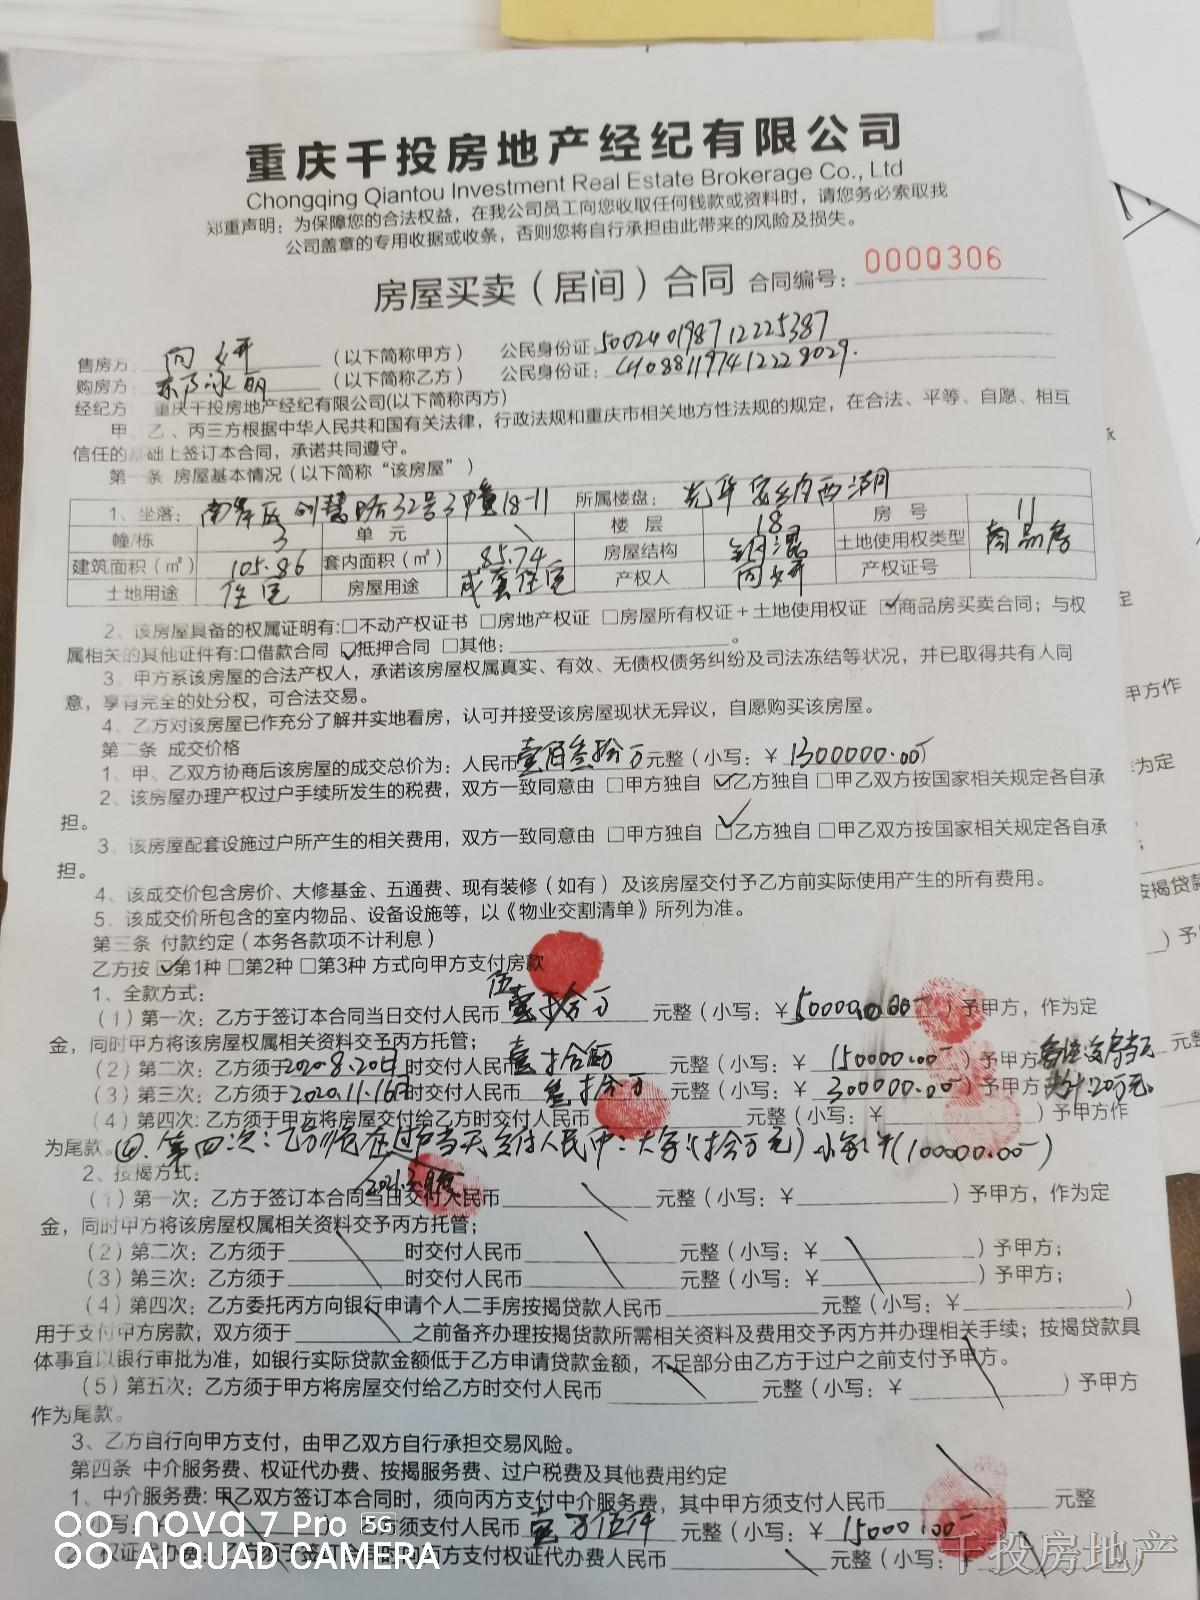 重庆千投房地产经纪有限公司
Chongqing Qiantou Investment Real Estate Brokerage Co., Ltd
郑重声明：为保障您的合法权益，在我公司员工向您收取任何钱款或资料时，请您务必索取我
公司盖章的专用收据或收条，否则您将自行承担由此带来的风险及损失。
房屋买卖（居间）合同 合同编号：0000306
售房方：向妍（以下简称甲方） 公民身份证：500240198712225387
购房方：冰丽（以下简称乙方） 公民身份证：
经纪方：重庆千投房地产经纪有限公司(以下简称丙方)
甲、乙、丙三方根据中华人民共和国有关法律，行政法规和重庆市相关地方性法规的规定，在合法、平等、自愿、相互
信任的基础上签订本合同，承诺共同遵守。
第一条 房屋基本情况（以下简称“该房屋”）
1、坐落：南岸区创慧路32号3幢18-11 所属楼盘：光华·安纳西湖
幢/栋 3 单元 \ 楼层 18 房号 11
建筑面积（㎡） 105.86 套内面积（㎡） 85.74 房屋结构 钢混 土地使用权类型 商品房
土地用途 住宅 房屋用途 成套住宅 产权人 向妍 产权证号
2、该房屋具备的权属证明有:□不动产权证书 □房地产权证 □房屋所有权证＋土地使用权证 ☑商品房买卖合同；与权
属相关的其他证件有:口借款合同 ☑抵押合同 □其他:。
3、甲方系该房屋的合法产权人，承诺该房屋权属真实、有效、无债权债务纠纷及司法冻结等状况，并已取得共有人同
意，享有完全的处分权，可合法交易。
4、乙方对该房屋已作充分了解并实地看房，认可并接受该房屋现状无异议，自愿购买该房屋。
第二条 成交价格
1、甲、乙双方协商后该房屋的成交总价为：人民币壹佰叁拾万元整（小写：￥1300000.00）
2、该房屋办理产权过户手续所发生的税费，双方一致同意由 □甲方独自 ☑乙方独自 □甲乙双方按国家相关规定各自承
担。
3、该房屋配套设施过户所产生的相关费用，双方一致同意由 □甲方独自 ☑乙方独自 □甲乙双方按国家相关规定各自承
担。
4、该成交价包含房价、大修基金、五通费、现有装修（如有）及该房屋交付予乙方前实际使用产生的所有费用。
5、该成交价所包含的室内物品、设备设施等，以《物业交割清单》所列为准。
第三条 付款约定（本务各款项不计利息）
乙方按 ☑第1种 □第2种 □第3种 方式向甲方支付房款
1、全款方式：
（1）第一次：乙方于签订本合同当日交付人民币伍拾万元整（小写：￥）予甲方，作为定
金，同时甲方将该房屋权属相关资料交予丙方托管；
（2）第二次：乙方须于2020.8.20日时交付人民币元整（小写：￥150000.00）予甲方
（3）第三次：乙方须于2020.11.16日时交付人民币叁拾万元整（小写：￥300000.00）予甲方共计20万元。
（4）第四次：乙方须于甲方将房屋交付给乙方时交付人民币元整（小写：￥）予甲方作
为尾款。④.第四次：乙方须在过户当天支付人民币：大写：(拾万元)小写：￥(100000.00)
2、按揭方式：
（1）第一次：乙方于签订本合同当日交付人民币元整（小写：￥）予甲方，作为定
金，同时甲方将该房屋权属相关资料交予丙方托管；
（2）第二次：乙方须于时交付人民币元整（小写：￥）予甲方；
（3）第三次：乙方须于时交付人民币元整（小写：￥）予甲方；
（4）第四次：乙方委托丙方向银行申请个人二手房按揭贷款人民币元整（小写：￥）
用于支付甲方房款，双方须于之前备齐办理按揭贷款所需相关资料及费用交予丙方并办理相关手续；按揭贷款具
体事宜以银行审批为准，如银行实际贷款金额低于乙方申请贷款金额，不足部分由乙方于过户之前支付予甲方。
（5）第五次：乙方须于甲方将房屋交付给乙方时交付人民币元整（小写：￥）予甲方
作为尾款。
3、乙方自行向甲方支付，由甲乙双方自行承担交易风险。
第四条 中介服务费、权证代办费、按揭服务费、过户税费及其他费用约定
1、中介服务费：甲乙双方签订本合同时，须向丙方支付中介服务费，其中甲方须支付人民币元整
乙方须支付人民币壹万伍仟元整（小写：￥15000.00
2、权证代办费：支付权证代办费人民币元整（小写：￥
nova 7 Pro 5G
AI QUAD CAMERA
千投房地产